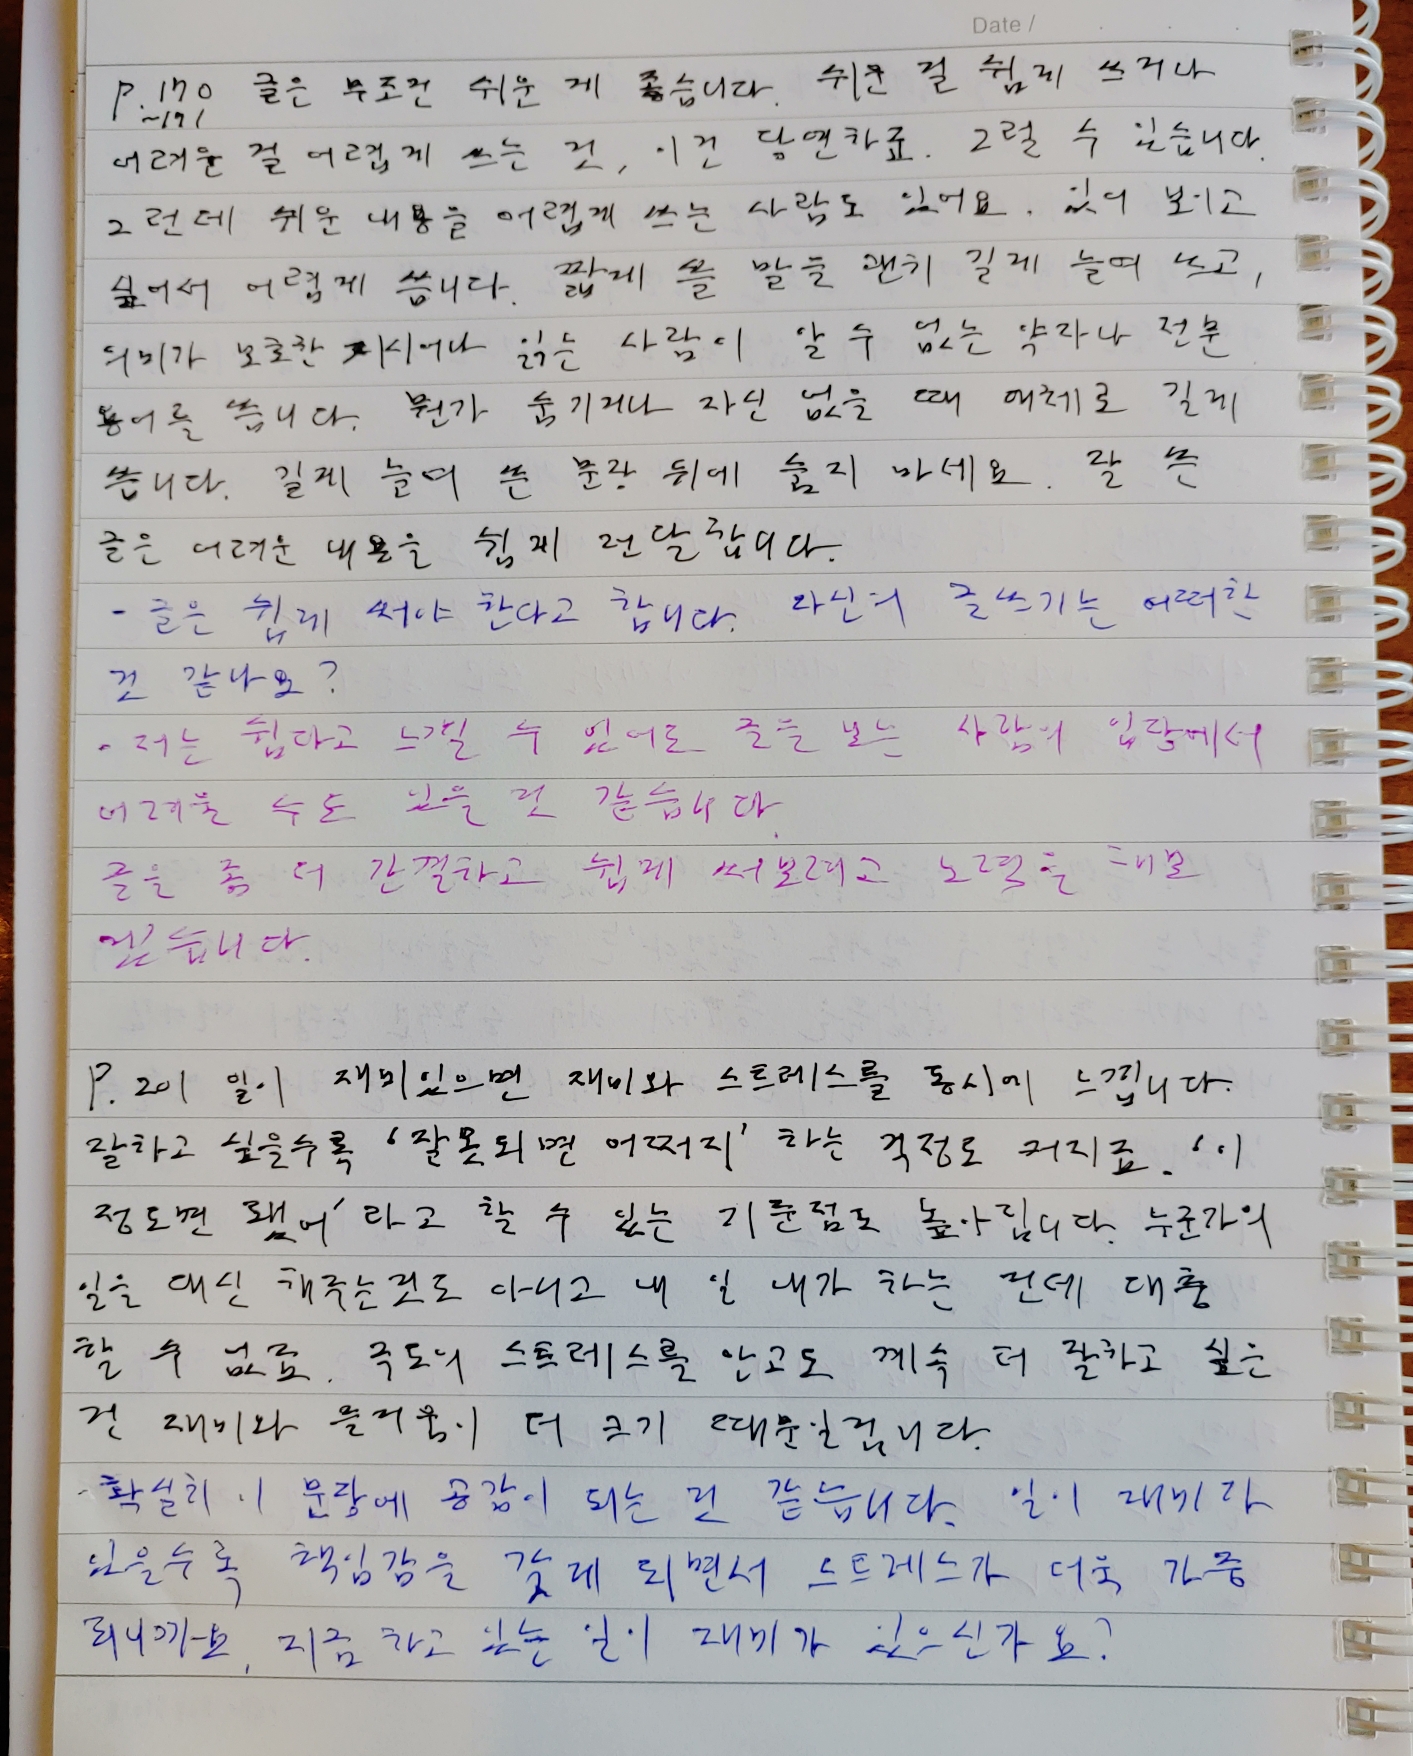 Date /
P.170 글은 무조건 쉬운 게 좋습니다. 쉬운 걸 쉽게 쓰거나
~171
어려운 걸 어렵게 쓰는 것, 이건 당연하죠. 그럴 수 있습니다.
그런데 쉬운 내용을 어렵게 쓰는 사람도 있어요. 있어 보이고
싶어서 어렵게 씁니다. 짧게 쓸 말을 괜히 길게 늘여 쓰고,
의미가 모호한 지시어나 읽는 사람이 알 수 없는 약자나 전문
용어를 씁니다. 뭔가 숨기거나 자신 없을 때 대체로 길게
씁니다. 길게 늘여 쓴 문장 뒤에 숨지 마세요. 잘 쓴
글은 어려운 내용을 쉽게 전달합니다.
- 글은 쉽게 써야 한다고 합니다. 자신의 글쓰기는 어떠한
것 같나요?
- 저는 쉽다고 느낄 수 있어도 글을 보는 사람의 입장에서
어려울 수도 있을 것 같습니다.
글을 좀 더 간결하고 쉽게 써보려고 노력을 해보
겠습니다.
P. 201 일이 재미있으면 재미와 스트레스를 동시에 느낍니다.
잘하고 싶을수록 '잘못되면 어쩌지' 하는 걱정도 커지죠. '이
정도면 됐어' 라고 할 수 있는 기준점도 높아집니다. 누군가의
일을 대신 해주는것도 아니고 내 일 내가 하는 건데 대충
할 수 없죠. 극도의 스트레스를 안고도 계속 더 잘하고 싶은
건 재미와 즐거움이 더 크기 때문일겁니다.
- 확실히 이 문장에 공감이 되는 것 같습니다. 일이 재미가
있을수록 책임감을 갖게 되면서 스트레스가 더욱 가중
되니까요, 지금 하고 있는 일이 재미가 있으신가요?